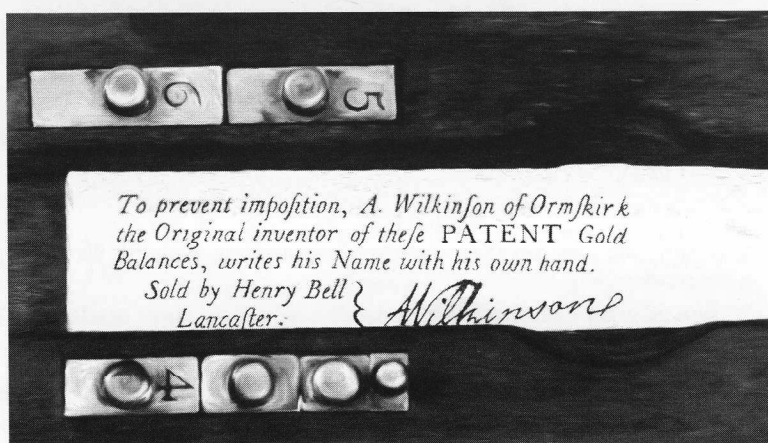 6 5
To prevent impoſition, A. Wilkinſon of Ormſkirk
the Original inventor of theſe PATENT Gold
Balances, writes his Name with his own hand.
Sold by Henry Bell }
Lancaſter. AWilkinson
4